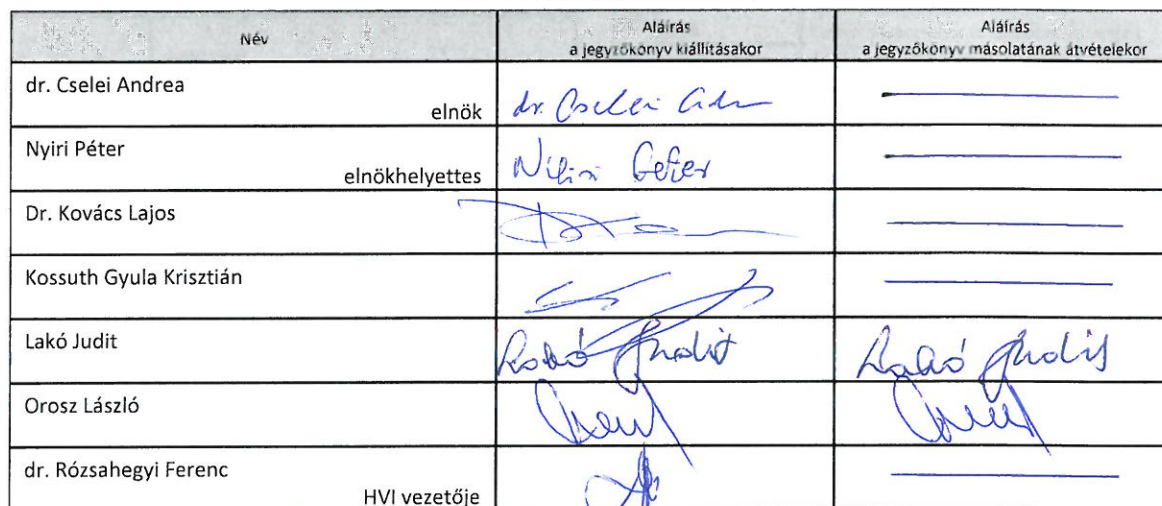 Név
Aláírás
a jegyzőkönyv kiállításakor
Aláírás
a jegyzőkönyv másolatának átvételekor
dr. Cselei Andrea
elnök
dr. Cselei
Nyiri Péter
elnökhelyettes
Nyiri Péter
Dr. Kovács Lajos
Kossuth Gyula Krisztián
Lakó Judit
Lakó Judit
Lakó Judit
Orosz László
dr. Rózsahegyi Ferenc
HVI vezetője